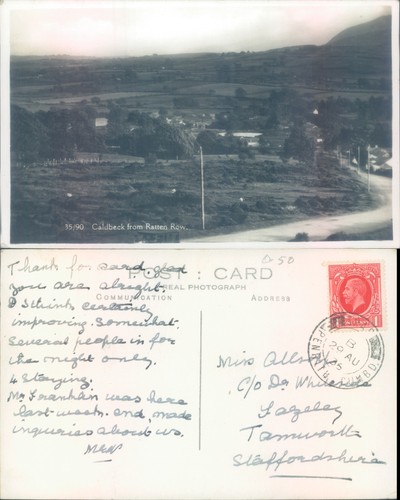 35/90. Caldbeck from Ratten Row.
POST CARD
REAL PHOTOGRAPH
COMMUNICATION
ADDRESS
Thanks for card glad
you are alright.
I think certainly
improving somewhat.
Several people in for
the night only.
4 staying.
Mr was here
last week. and made
inquiries about us.
Miss
C/o Dr
Lazeley
Tamworth
Staffordshire
PENRITH
29 AU
35
CUMBD.